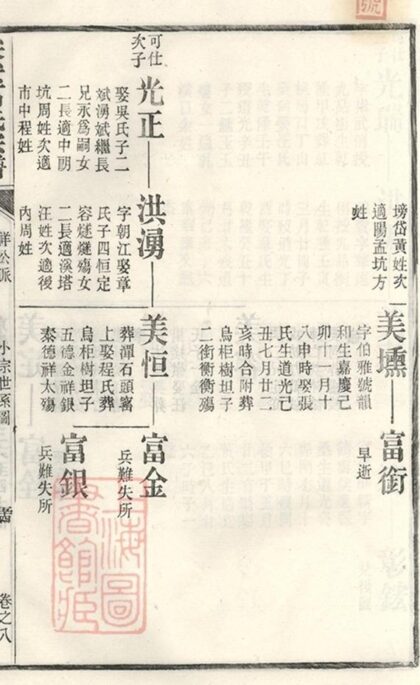 塝岱黃姓次
適陽孟坑方
姓
美壎
字伯雅號韻
和生嘉慶己
卯十一月十
八申時娶張
氏生道光己
丑七月廿二
亥時合附葬
烏柜樹坦子
二銜衡衡殤
富銜
早逝
可仕
次子
光正
娶吳氏子二
斌湧斌繼長
兄永爲嗣女
二長適中朋
坑周姓次適
市中程姓
洪湧
字朝江娶章
氏子四恒定
容燧燧殤女
二長適溪塔
汪姓次適後
內周姓
美恒
葬潭石頭窩
上娶程氏葬
烏柜樹坦子
五德金祥銀
泰德祥太殤
富金
兵難失所
富銀
兵難失所
小宗世系圖
卷之八
海圖
書館